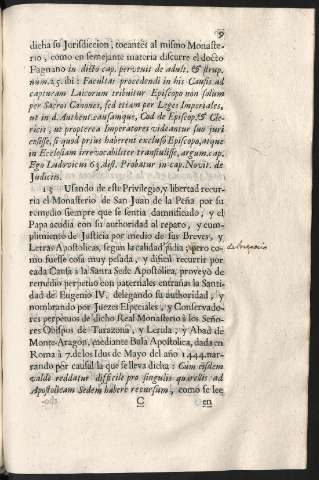 9
dicha su Jurisdiccion, tocantes al mismo Monaste-
rio, como en semejante materia discurre el docto
Fagnano in dicto cap. pervenit de adult. & strup.
num.25. ibi: Facultas procedendi in his Causis ad
capturam Laicorum tribuitur Episcopo non solum
per Sacros Canones, sed etiam per Leges Imperiales,
ut in d. Authent. eausamque, Cod de Episcop. & Cle-
ricis, ut propterea Imperatores videantur suo juri
cesisse, si quod prius haberent exclusò Episcopo, atque
in Ecclesiam irrevocabiliter transtulisse, argum. cap.
Ego Ludovicus 63. dist. Probatur in cap. Novit. de
Judiciis.
13 Usando de este Privilegio, y libertad recur-
ria el Monasterio de San Juan de la Peña por su
remedio siempre que se sentia damnificado, y el
Papa acudia con su authoridad al reparo, y cum-
plimiento de Justicia por medio de sus Breves, y
Letras Apostolicas, segun la calidad pidia; pero co-
mo fuesse cosa muy pesada, y dificil recurrir por
cada Causa à la Santa Sede Apostolica, proveyò de
remedio perpetuo con paternales entrañas la Santi-
dad de Eugenio IV. delegando su authoridad, y
nombrando por Juezes Especiales, y Conservado-
res perpetuos de dicho Real Monasterio à los Seño-
res Obispos de Tarazona, y Lerida, y Abad de
Monte-Aragon, mediante Bula Apostolica, dada en
Roma à 7. de los Idus de Mayo del año 1444. nar-
rando por causal la que se lleva dicha: Cum eisdem
valdè reddatur difficile pro singulis querelis ad
Apostolicam Sedem habere recursum, como se lee
C
en